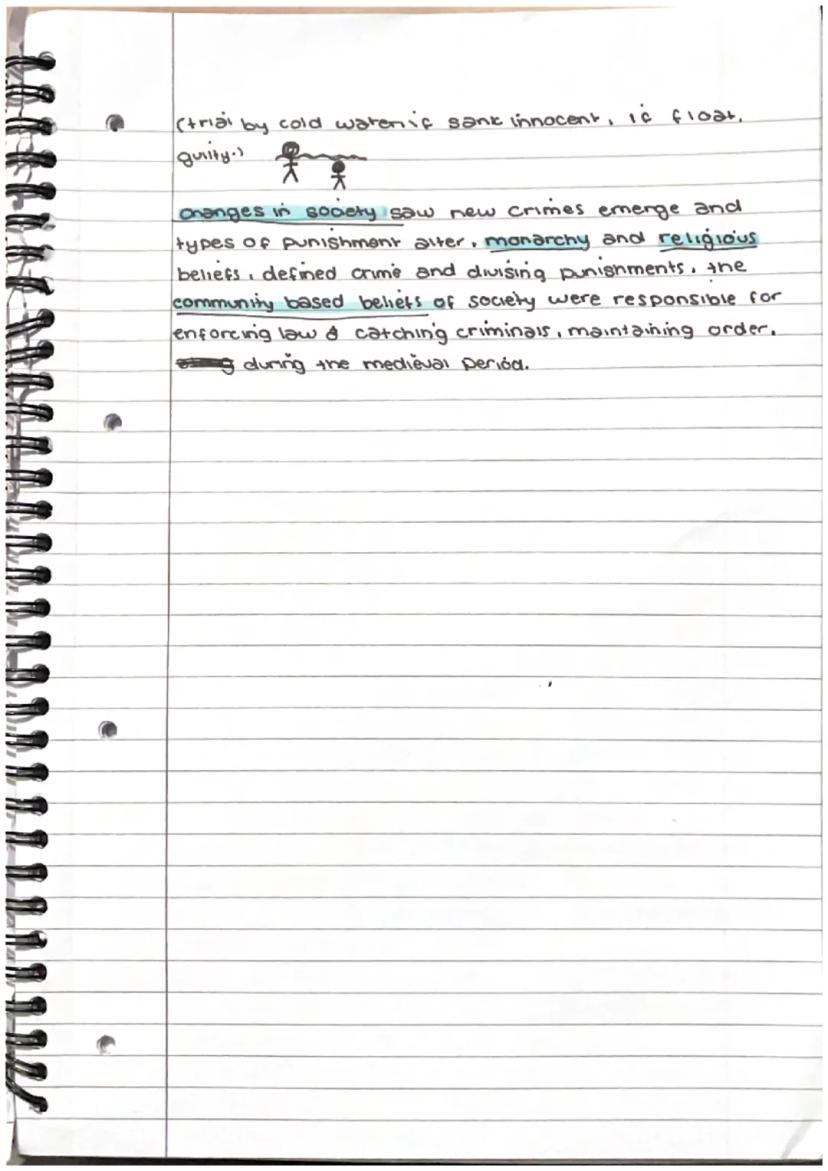 (trial by cold water: if sank innocent, if float,
guilty.)
changes in society saw new crimes emerge and
types of punishment alter, monarchy and religious
beliefs, defined crime and divising punishments, the
community based beliefs of society were responsible for
enforcing law & catching criminals, maintaining order,
during the medieval period.